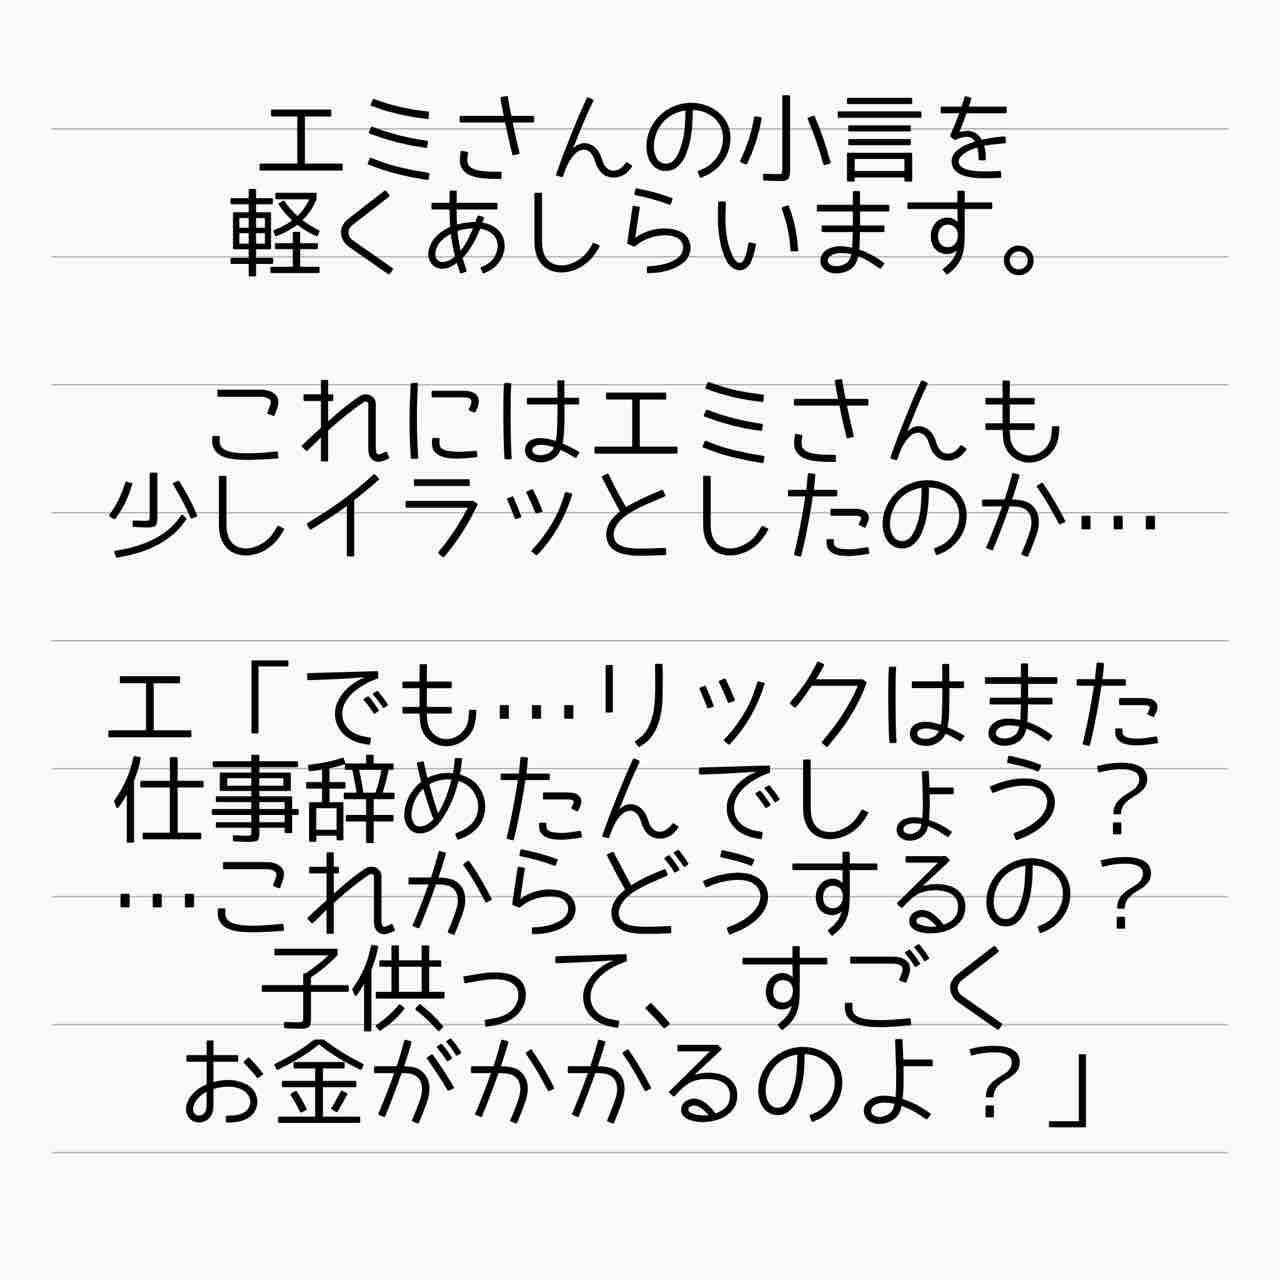 エミさんの小言を
軽くあしらいます。
これにはエミさんも
少しイラッとしたのか…
エ「でも…リックはまた
仕事辞めたんでしょう？
…これからどうするの？
子供って、すごく
お金がかかるのよ？」